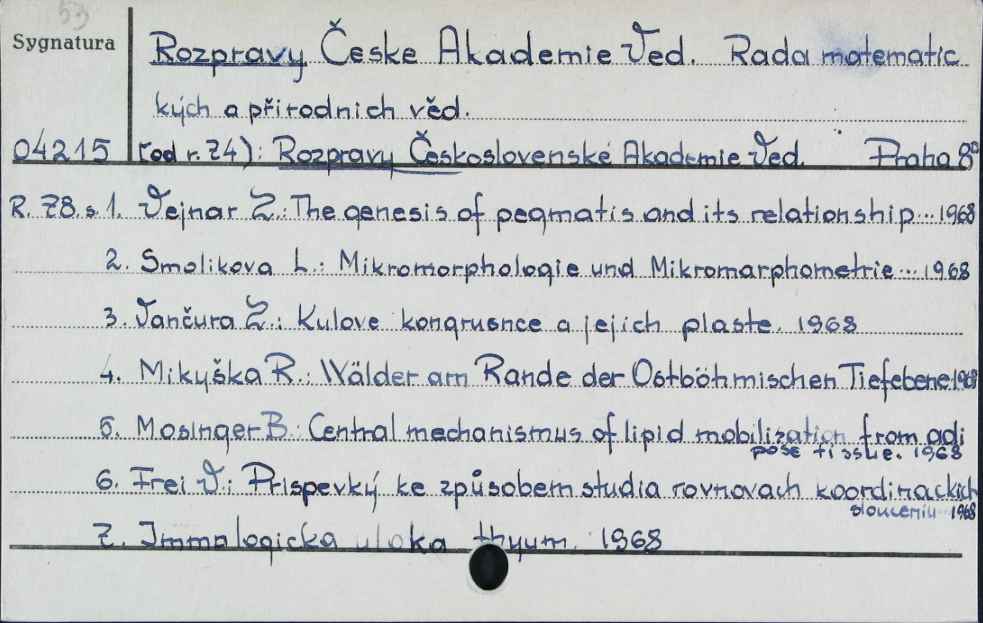 53
Sygnatura
Rozpravy Česke Akademie Ved. Rada matematic
kých a přirodnich věd.
04215 (od r. 74): Rozpravy Československé Akademie Ved. Praha 8°
R. 78. s. 1. Vejnar Z.: The genesis of pegmatis and its relationship ... 1968
2. Smolikova L.: Mikromorphologie und Mikromarphometrie ... 1968
3. Vančura Z.: Kulove kongruence a jejich plaste. 1968
4. Mikyška R.: Wälder am Rande der Ostböhmischen Tiefebene 1968
5. Mosinger B.: Central mechanismus of lipid mobilization from adi
pose tissue. 1968
6. Frei V.: Prispevký ke způsobem studia rovnovach koordinackich
slouceniu 1968
7. Immalogicka uloka thyum. 1968